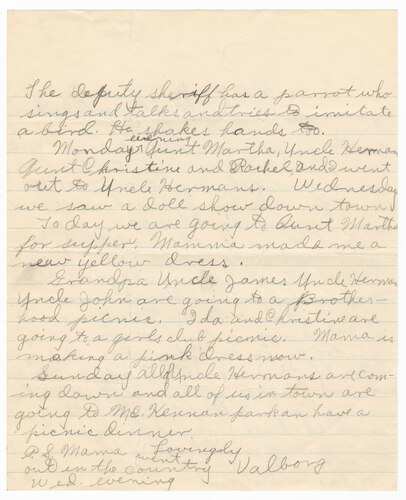 The deputy sheriff has a parrot who
sings and talks and tries to imitate
a bird. He shakes hands to.
Monday evening Aunt Martha, Uncle Herman
Aunt Christine and Rachel, and I went
out to Uncle Hermans. Wednesday
we saw a doll show down town.
Today we are going to Aunt Martha
for supper. Mamma made me a
new yellow dress.
Grandpa Uncle James Uncle Herman
Uncle John are going to a Brother-
hood picnic. Ida and Christine are
going to a girls club picnic. Mama is
making a pink dress now.
Sunday all of Uncle Hermans are com-
ing down and all of us in town are
going to Mc. Kennan park an have a
picnic dinner.
P.S. Mama went
out in the country
Wed. evening
Lovingly
Valborg